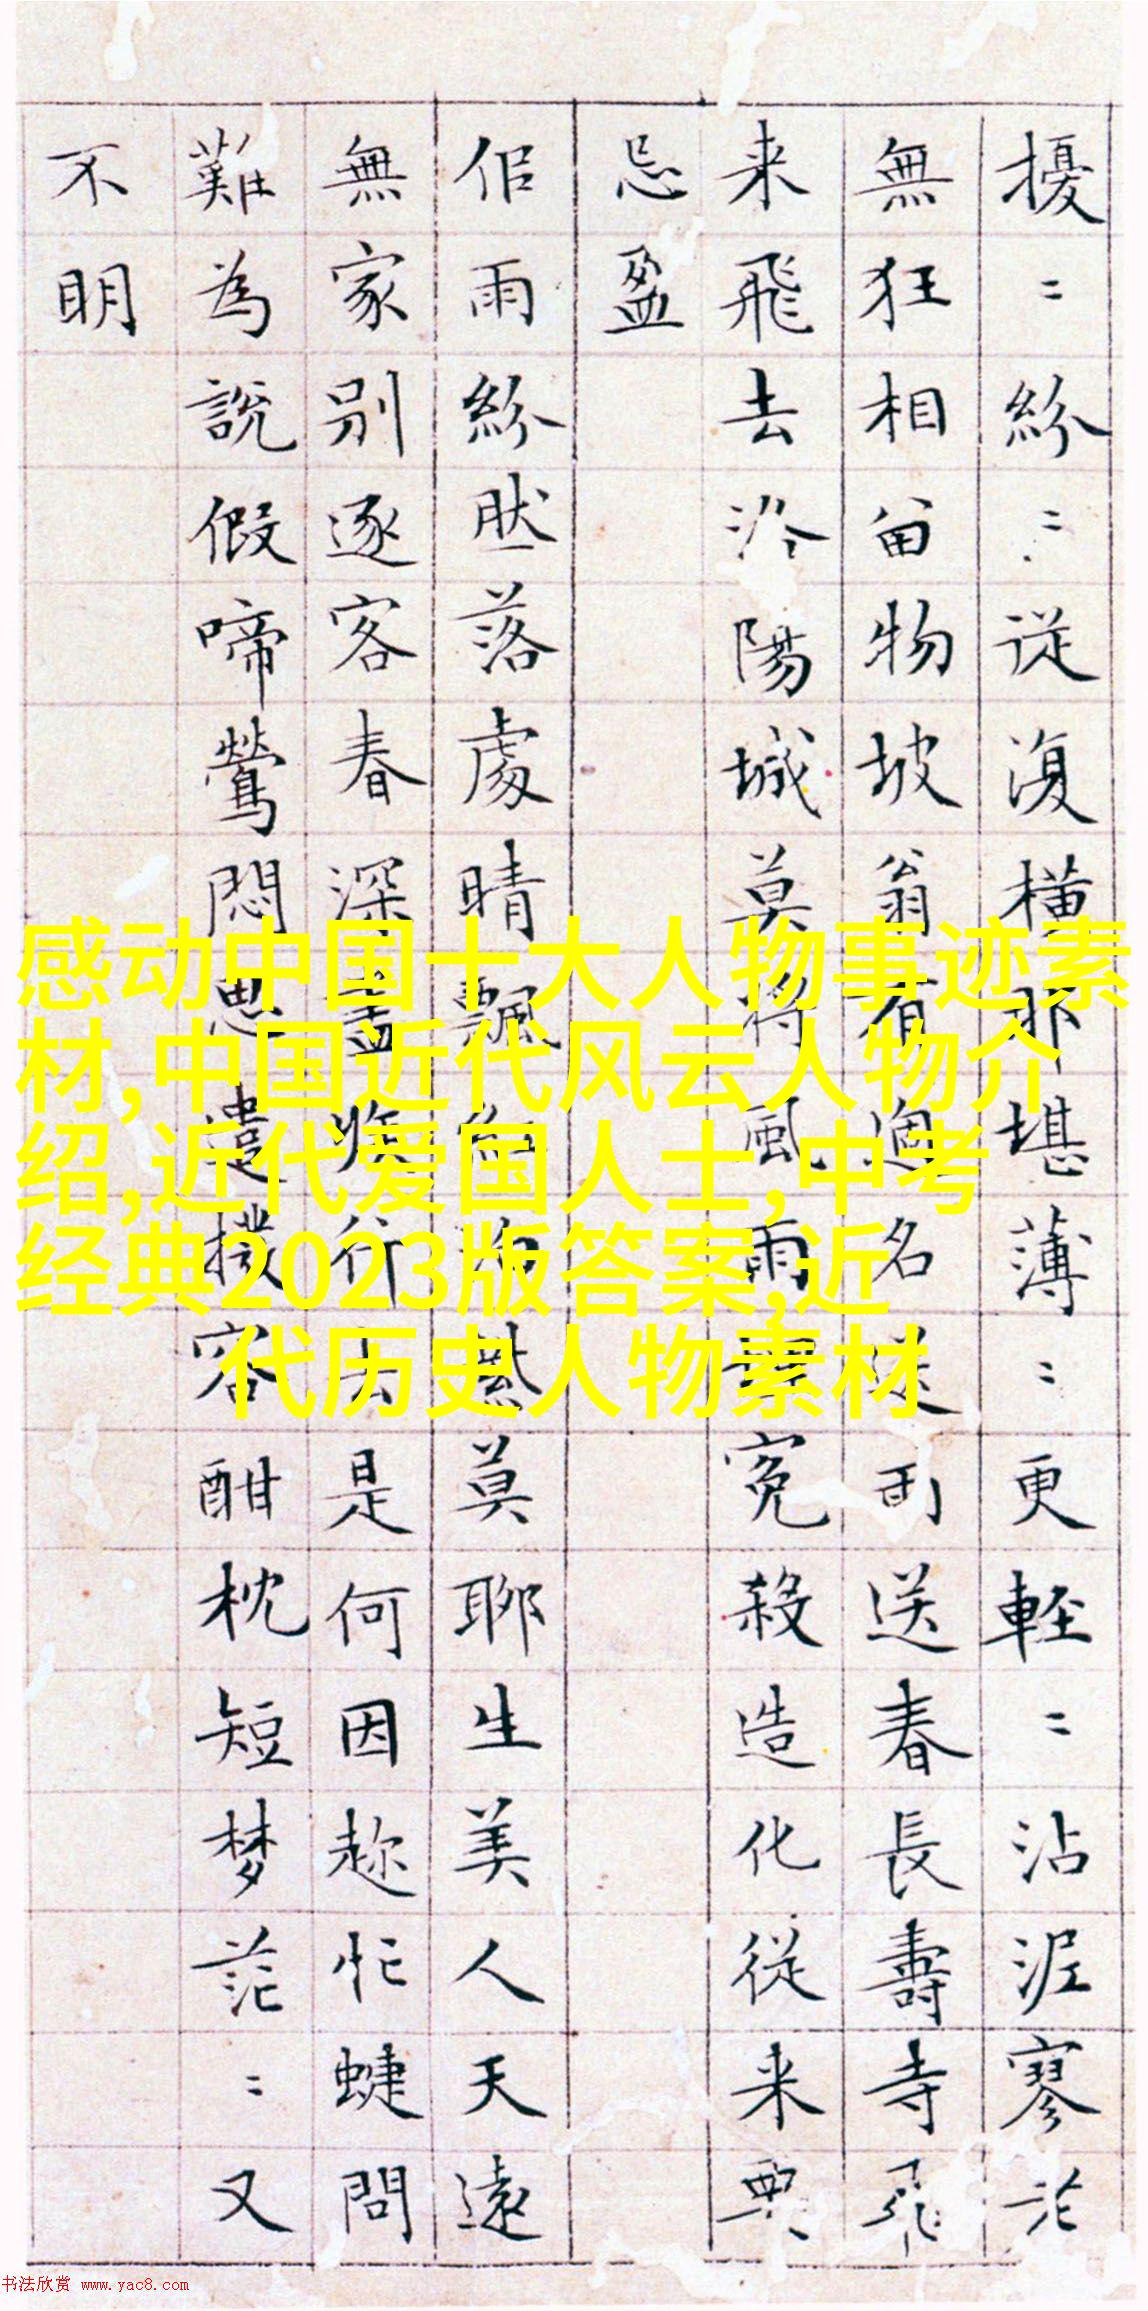 擾〻紛〻從復橫那堪薄〻更輕〻沾泥寥
無狂相留物坡翁有名送春長壽寺飛
来飛去洛陽城莫將風雨冤殺造化從来
忌盈
但雨紛然落處晴飄莫聊生美人天遠
無家別逐客春深行去是何因趁忙蜨問
難為說假啼鶯悶思遣撥容酣枕短梦茫〻又
不明
感动中国十大人物事迹素
材,中国近代风云人物介
绍,近代爱国人士,中考
经典2023版答案,近
代历史人物素材
书法欣赏 www.yac8.com